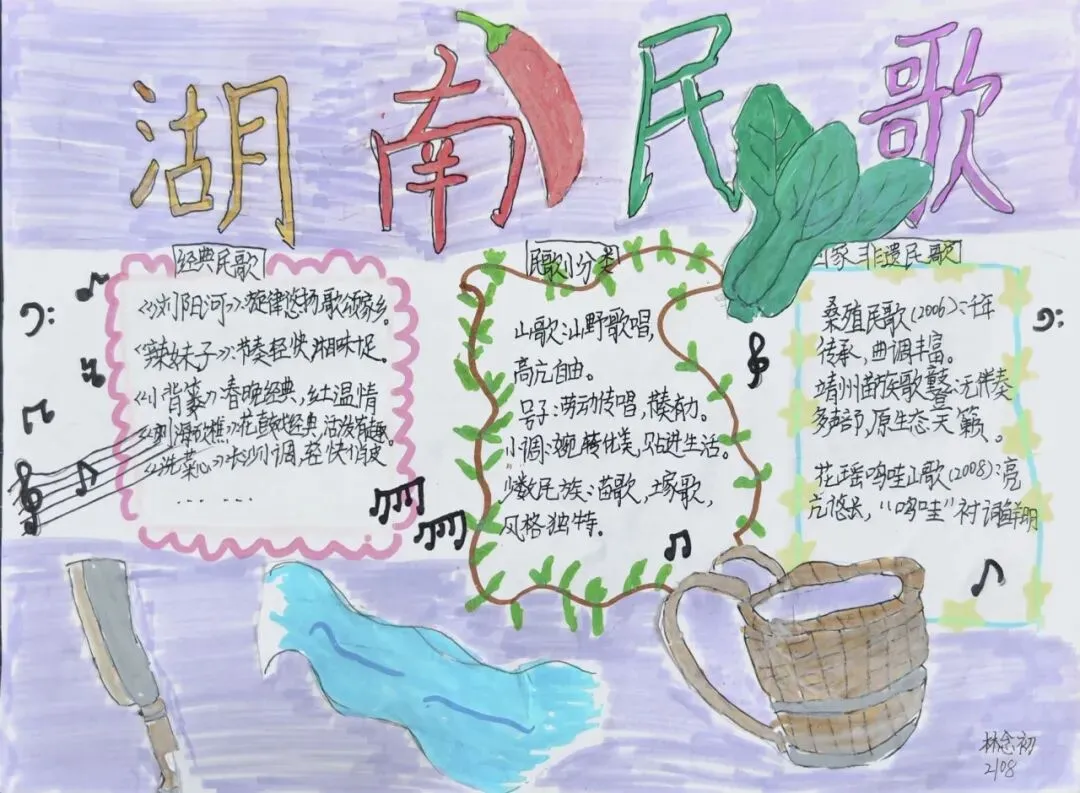 湖南民歌
经典民歌
《浏阳河》:旋律悠扬歌颂家乡。
《辣妹子》:节奏轻快,湘味足。
《小背篓》:春晚经典,红温情
《刘海砍樵》:花鼓戏经典,活泼有趣。
《洗菜心》:长沙小调,轻快俏皮
……
民歌小分类
山歌:山野歌唱,
高亢自由。
号子:劳动传唱,有力。
小调:婉转优美,贴近生活。
少数民族:苗歌,土家歌,
风格独特。
家非遗民歌
桑植民歌(2006):千年
传承,曲调丰富。
靖州苗族歌鼟:无伴奏
多声部,原生态天籁。
花瑶呜哇山歌(2008):高
亢悠长,“呜哇”衬词鲜明
林念初
2108